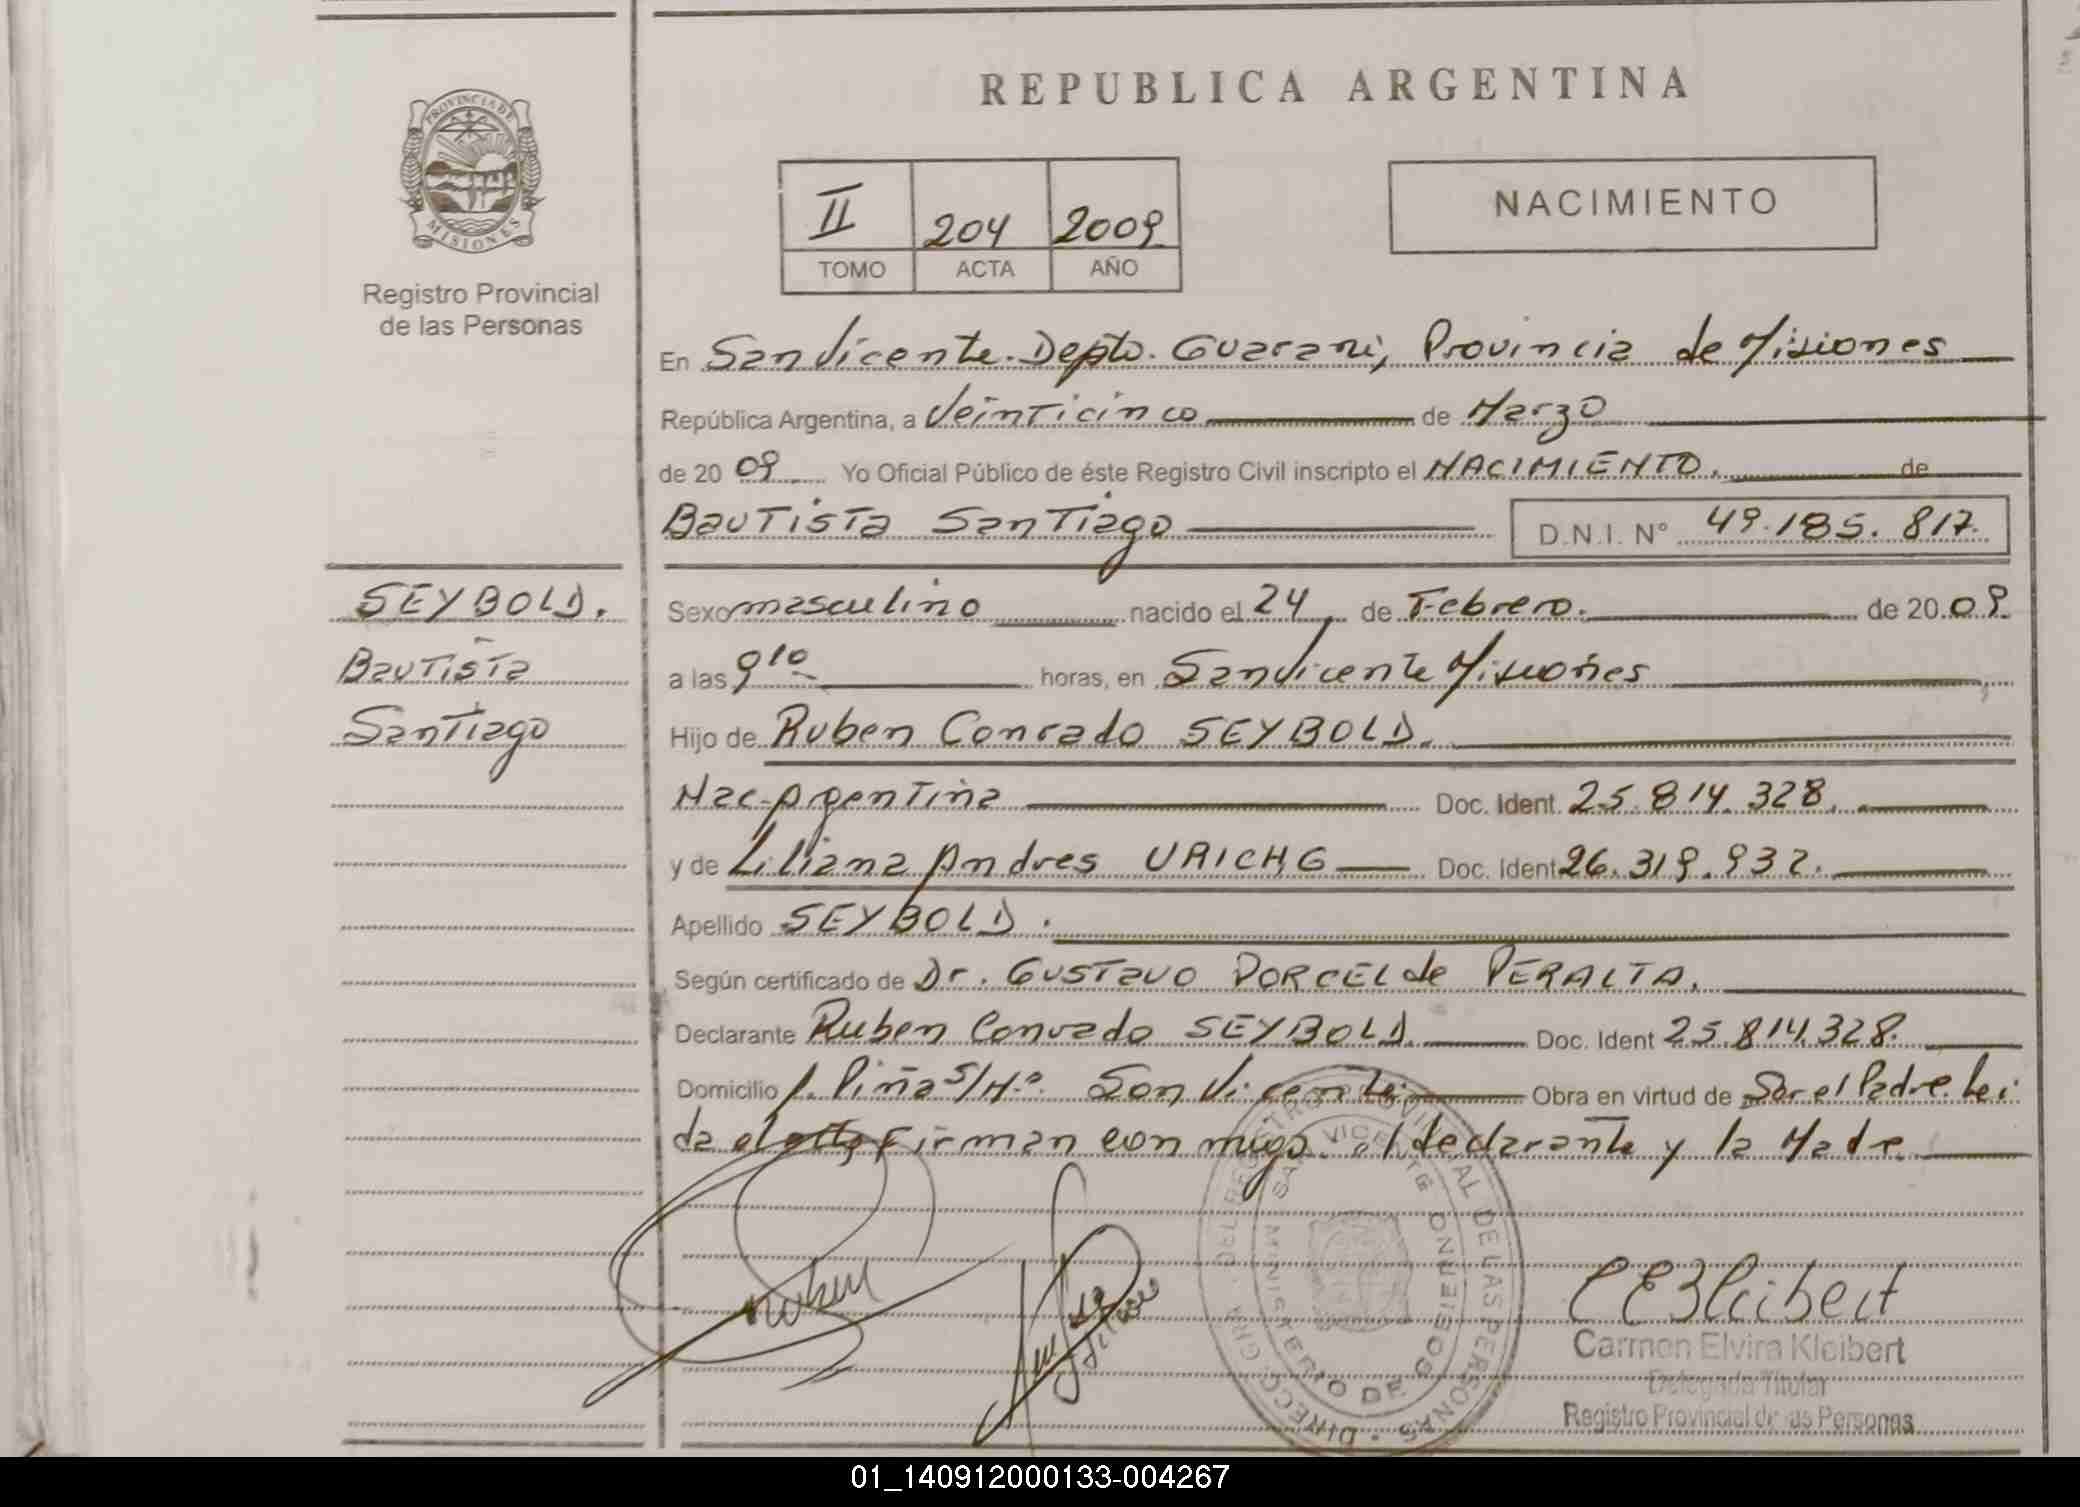 REPUBLICA ARGENTINA
PROVINCIA DE
MISIONES
Registro Provincial
de las Personas
II 204 2009
TOMO ACTA AÑO
NACIMIENTO
En San Vicente. Depto. Guarani, Provincia de Misiones
República Argentina, a Veinticinco de Marzo
de 20 09 Yo Oficial Público de éste Registro Civil inscripto el NACIMIENTO. de
Bautista Santiago D.N.I. N° 49.185.817.
SEYBOLD.
Bautista
Santiago
Sexo masculino nacido el 24 de Febrero. de 20 09
a las 9 10 horas, en San Vicente Misiones
Hijo de Ruben Conrado SEYBOLD.
Nac. Argentina Doc. Ident. 25.814.328.
y de Liliana Andres URICHG Doc. Ident 26.319.932.
Apellido SEYBOLD.
Según certificado de Dr. Gustavo PORCEL de PERALTA.
Declarante Ruben Conrado SEYBOLD. Doc. Ident 25.814.328.
Domicilio Piña S/Nº San Vicente Obra en virtud de Ser el Padre. Lei
da el acta, Firman con migo el declarante y la Madre.
DIRECC. GRAL. DEL REGISTRO PROVINCIAL DE LAS PERSONAS
SAN VICENTE
MINISTERIO DE GOBIERNO
Carmen Elvira Kleibert
Delegada Titular
Registro Provincial de las Personas
01_140912000133-004267